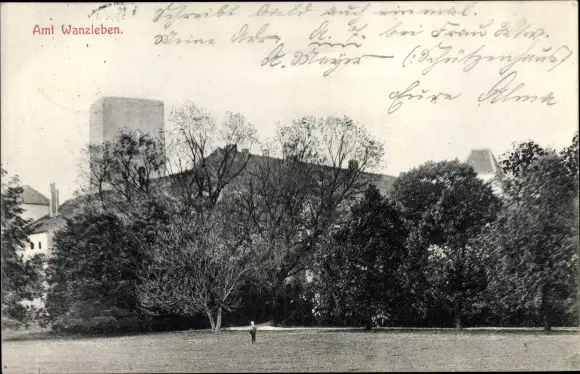 Amt Wanzleben.
Schreibt bald auch einmal.
Meine Adr. A. F. bei Frau Ww.
A. Mayer (Schützenhaus)
Eure Alma